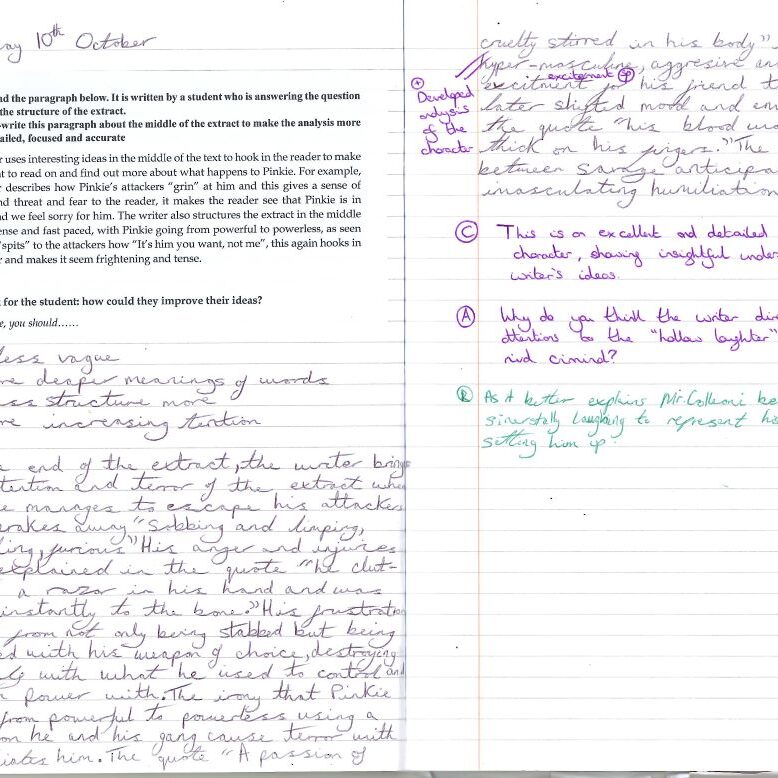 ay 10th October
ad the paragraph below. It is written by a student who is answering the question
the structure of the extract.
-write this paragraph about the middle of the extract to make the analysis more
ailed, focused and accurate
r uses interesting ideas in the middle of the text to hook in the reader to make
nt to read on and find out more about what happens to Pinkie. For example,
r describes how Pinkie's attackers "grin" at him and this gives a sense of
nd threat and fear to the reader, it makes the reader see that Pinkie is in
nd we feel sorry for him. The writer also structures the extract in the middle
ense and fast paced, with Pinkie going from powerful to powerless, as seen
"spits" to the attackers how "It's him you want, not me", this again hooks in
r and makes it seem frightening and tense.
for the student: how could they improve their ideas?
e, you should……
less vague
re deaper meanings of words
ss structure more
re increasing tention
end of the extract, the writer brings
tention and terror of the extract whe
e manages to escape his attackers
reakes away "Sobbing and limping,
ing, furious" His anger and injuries
explained in the quote "he clut-
a razor in his hand and was
instantly to the bone." His frustration
from not only being stabbed but being
ed with his weapon of choice, destroying
with what he used to control and
power with. The irony that Pinkie
from powerful to powerless using a
on he and his gang cause terror with
iates him. The quote "A passion of
cruelty stirred in his body".
hyper-masculine, aggresive an
excitment for his friend t
excitement sp
later shifted mood and em
the quote "his blood was
thick on his fingers." The
between savage anticipa
imasculating humiliation
+
Developed
analysis
of the
character
C This is an excellent and detailed
character, showing insightful under
writer's ideas.
A Why do you think the writer dire
attentions to the "hollow laughter"
rival criminal?
R As it better explains Mr. Colleoni be
sinerstally laughing to represent his
setting him up.